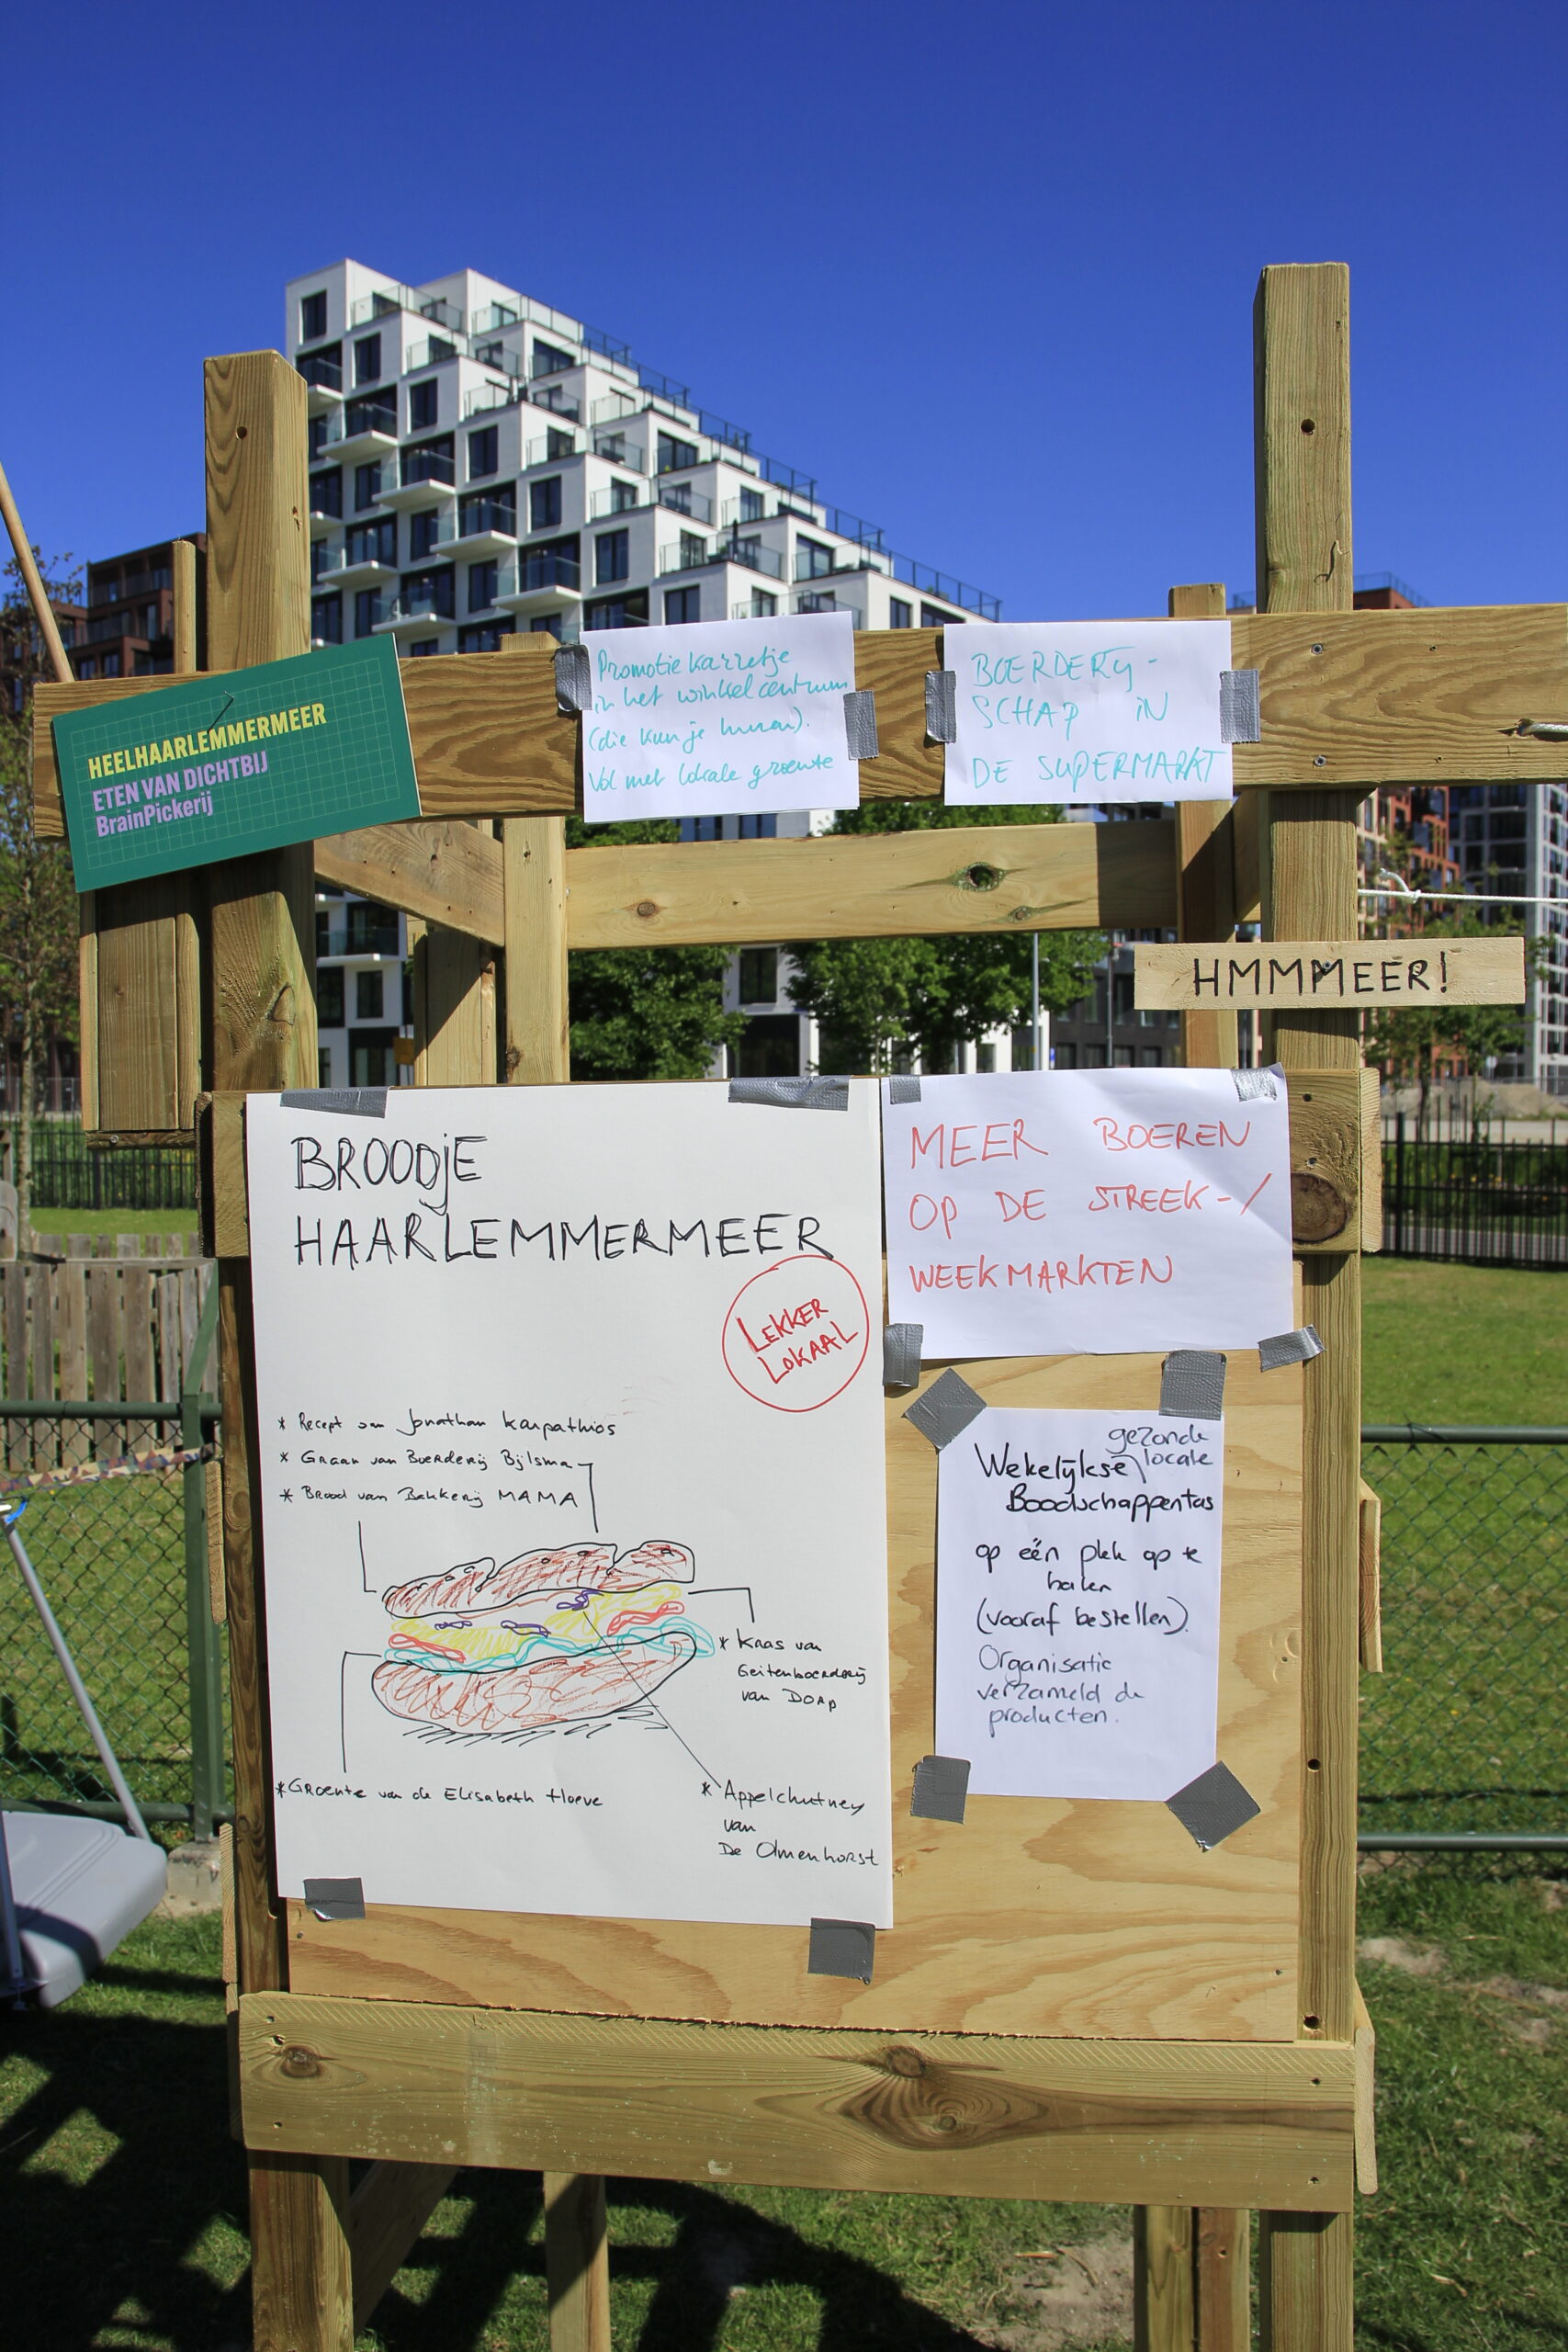 HEELHAARLEMMERMEER
ETEN VAN DICHTBIJ
BrainPickerij
Promotie karretje
in het winkelcentrum
(die kun je huren).
Vol met lokale groente
BOERDERIJ-
SCHAP IN
DE SUPERMARKT
HMMMEER!
BROODJE
HAARLEMMERMEER
LEKKER
LOKAAL
* Recept van Jonathan Karpathios
* Graan van Boerderij Bijlsma
* Brood van Bakkerij MAMA
* Kaas van
Geitenboerderij
van Dorp
* Groente van de Elisabeth Hoeve
* Appelchutney
van
De Olmenhorst
MEER BOEREN
OP DE STREEK-/
WEEKMARKTEN
gezonde
locale
Wekelijkse
Boodschappentas
op één plek op te
halen
(vooraf bestellen).
Organisatie
verzameld de
producten.